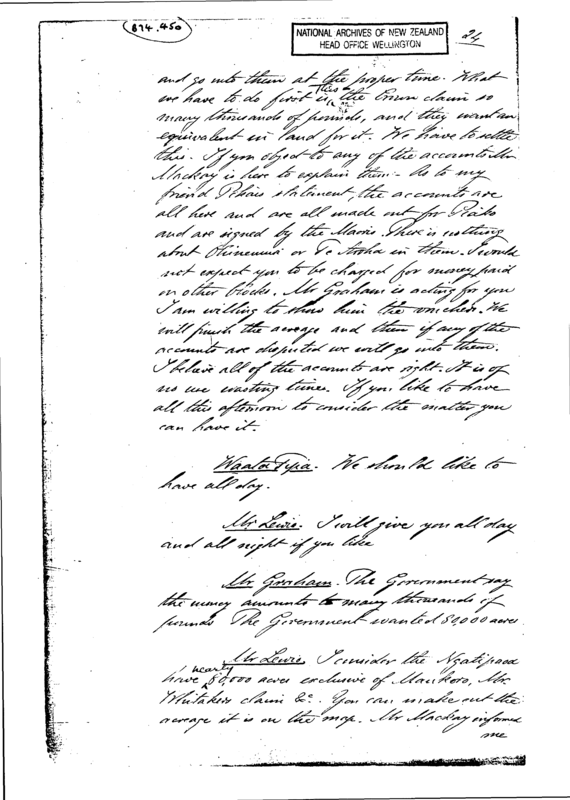 874.450
NATIONAL ARCHIVES OF NEW ZEALAND
HEAD OFFICE WELLINGTON
24
and go into them at the proper time. What
we have to do first is this the Crown claim so
many thousands of pounds, and they want an
equivalent in land for it. We have to settle
this. If you object to any of the accounts Mr
Mackay is here to explain them - As to my
friend statement, the accounts are
all here and are all made out for Piako
and are signed by the Maoris. There is nothing
about Ohinemuri or Te Aroha in them. I would
not expect you to be charged for money paid
on other blocks. Mr Graham is acting for you
I am willing to show him the vouchers. We
will finish the acreage and then if any of the
accounts are disputed we will go into them.
I believe all of the accounts are right. It is of
no use wasting time. If you like to have
all this afternoon to consider the matter you
can have it.
Waata Tipa. We should like to
have all day.
Mr Lewis. I will give you all day
and all night if you like
Mr Graham. The Government say
the money amounts to many thousands of
pounds The Government wanted 80,000 acres
Mr Lewis I consider the Ngatipaoa
have nearly 80,000 acres exclusive of Maukoro, Mr
Whitakers claim &c. You can make out the
acreage it is on the map. Mr Mackay informed
me